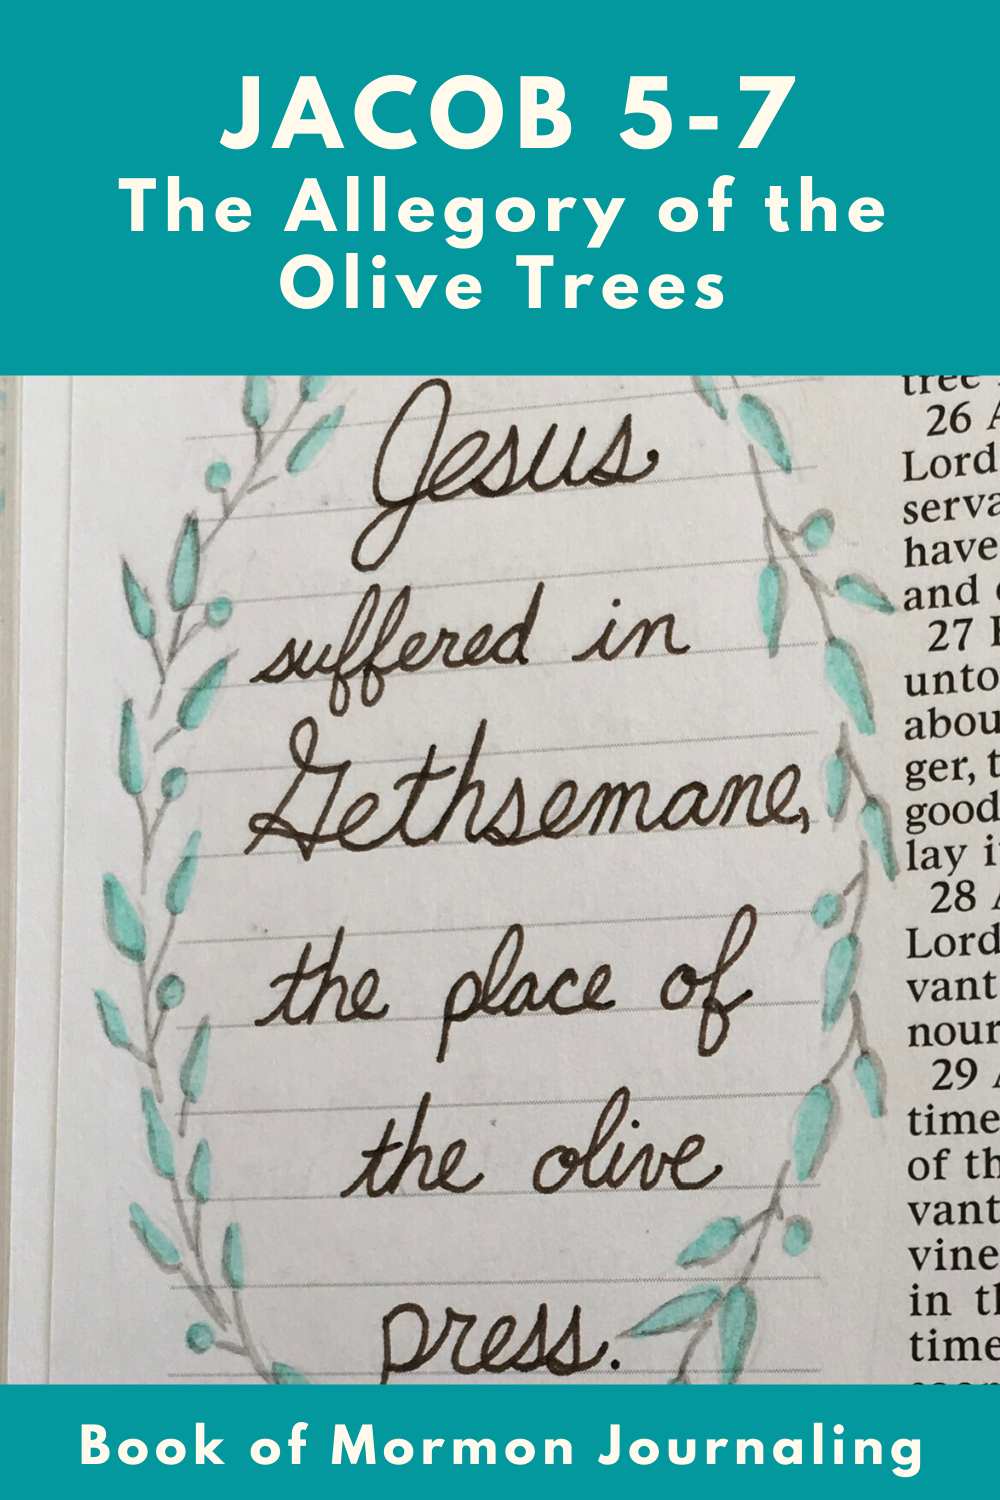 JACOB 5-7
The Allegory of the
Olive Trees
Jesus
suffered in
Gethsemane,
the place of
the olive
press.
tree
26 A
Lord
serva
have
and
27
unto
abou
ger, t
good
lay i
28 A
Lord
vant
nour
29 A
time
of th
vant
vine
in th
time
Book of Mormon Journaling